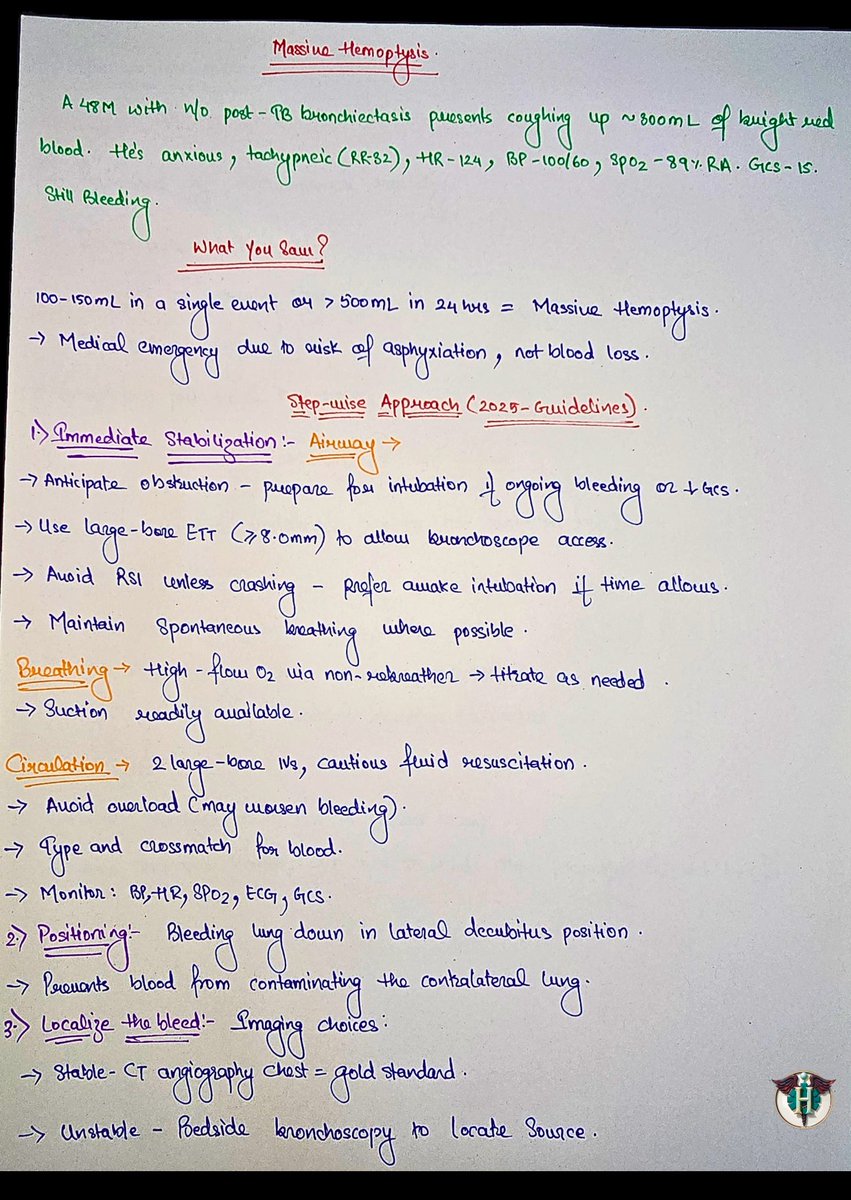 Massive Hemoptysis.
A 48M with h/o post-TB bronchiectasis presents coughing up ~300mL of bright red
blood. He's anxious, tachypneic (RR-32), HR-124, BP-100/60, SpO2-89% RA. GCS-15.
Still Bleeding.
What You Saw?
100-150mL in a single event or >500mL in 24 hrs = Massive Hemoptysis.
→ Medical emergency due to risk of asphyxiation, not blood loss.
Step-wise Approach (2025-Guidelines).
1.) Immediate Stabilization:- Airway →
→ Anticipate obstruction - prepare for intubation if ongoing bleeding or ↓ GCS.
→ Use large-bore ETT (≥8.0mm) to allow bronchoscope access.
→ Avoid RSI unless crashing - Prefer awake intubation if time allows.
→ Maintain Spontaneous breathing where possible.
Breathing → High-flow O2 via non-rebreather → titrate as needed.
→ Suction readily available.
Circulation → 2 large-bore IVs, cautious fluid resuscitation.
→ Avoid overload (may worsen bleeding).
→ Type and crossmatch for blood.
→ Monitor: BP, HR, SPO2, ECG, GCS.
2.) Positioning:- Bleeding lung down in lateral decubitus position.
→ Prevents blood from contaminating the contralateral lung.
3.) Localize the bleed:- Imaging choices:
→ Stable- CT angiography chest = gold standard.
→ Unstable - Bedside bronchoscopy to locate Source.
H